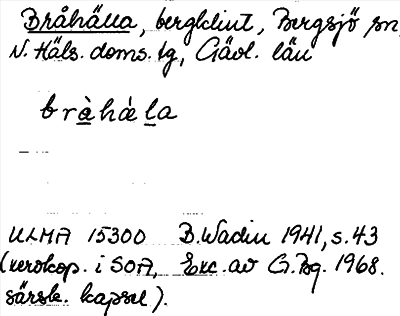 Bråhälla, bergklint, Bergsjö sn,
N. Häls. doms. tg, Gävl. län
brà̱há̱la
ULMA 15300 B. Wadin 1941, s. 43
(xerokop. i SOA, Exc. av G. Bg. 1968.
särsk. kapsel).